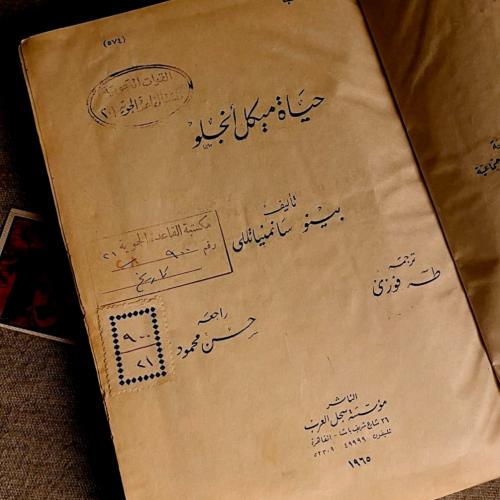 (٥٧٤)
القوات الجوية
حياة ميكل أنجلو
تأليف
بينو سانمنياتللى
مكتبة القاعدة الجوية
رقم ٩٠٠ ٢١
تاريخ
ترجمة
طه فوزى
راجعه
حسن محمود
٩٠٠
٢١
الناشر
مؤسسة سجل العرب
٢٦ شارع شريف باشا - القاهرة
تليفون ٤٩٩٩٩ ٥٢٣٠٩
١٩٦٥